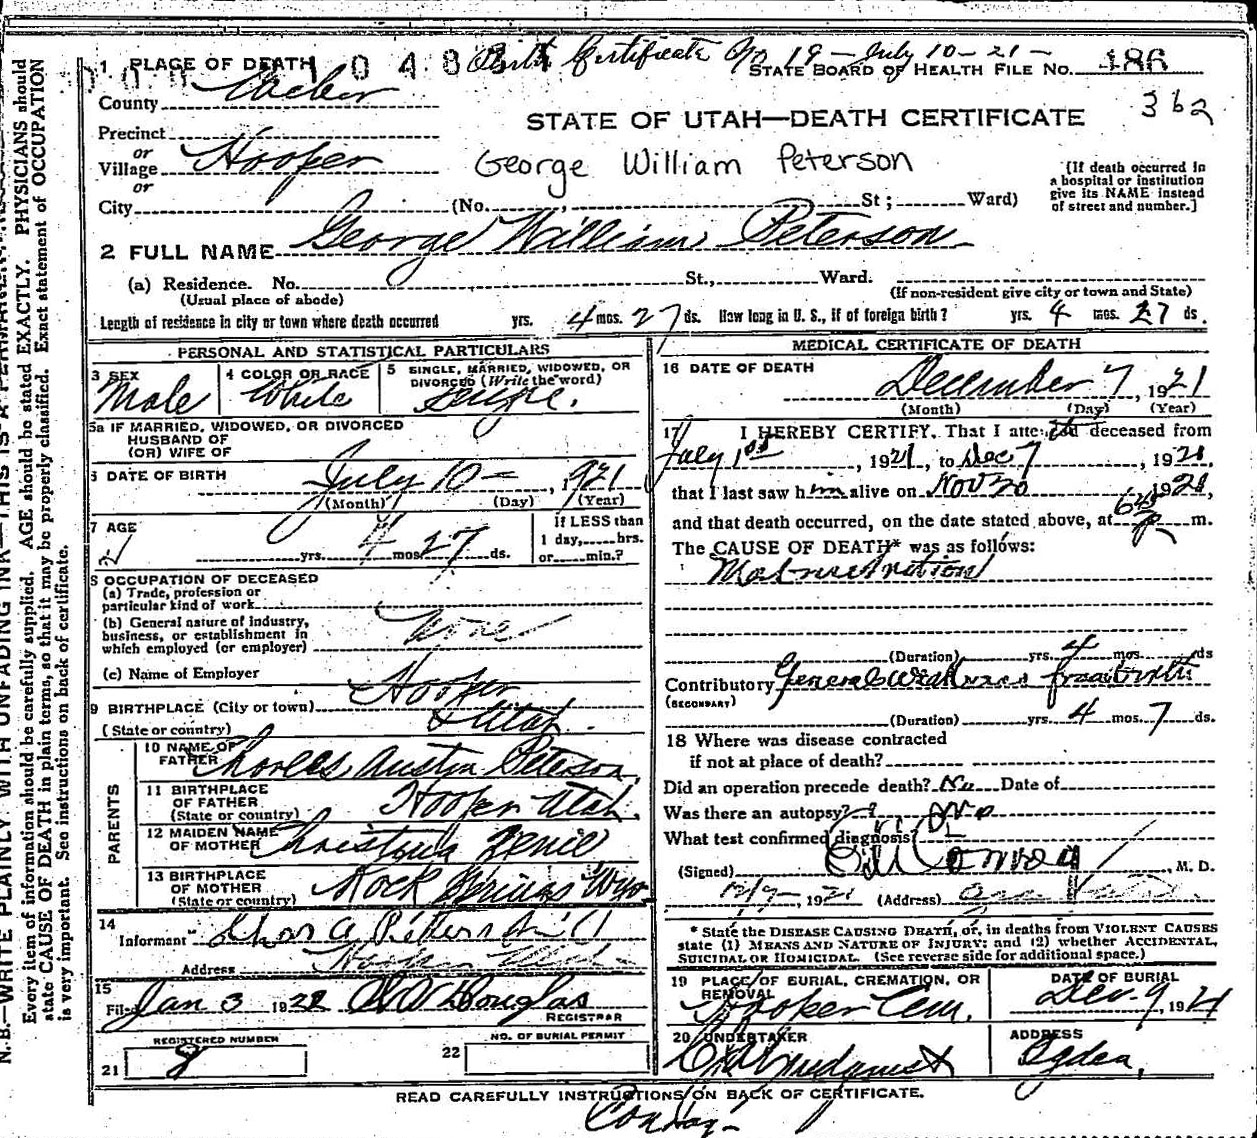 Birth Certificate No 19 - July 10-21 -
1 PLACE OF DEATH
STATE BOARD OF HEALTH FILE NO. 186
County Weber
362
STATE OF UTAH—DEATH CERTIFICATE
Precinct
or
Village Hooper
George William Peterson
[If death occurred in
a hospital or institution
give its NAME instead
of street and number.]
or
City (No. , St ; Ward)
2 FULL NAME George William Peterson
(a) Residence. No. St., Ward.
(Usual place of abode) (If non-resident give city or town and State)
Length of residence in city or town where death occurred yrs. 4 mos. 27 ds. How long in U. S., if of foreign birth? yrs. 4 mos. 27 ds.
PERSONAL AND STATISTICAL PARTICULARS
3 SEX Male
4 COLOR OR RACE White
5 SINGLE, MARRIED, WIDOWED, OR
DIVORCED (Write the word)
Single.
5a IF MARRIED, WIDOWED, OR DIVORCED
HUSBAND OF
(OR) WIFE OF
6 DATE OF BIRTH July 10 - , 1921
(Month) (Day) (Year)
7 AGE
yrs. 4 mos. 27 ds.
If LESS than
1 day, hrs.
or min.?
8 OCCUPATION OF DECEASED
(a) Trade, profession or
particular kind of work
(b) General nature of industry,
business, or establishment in
which employed (or employer) None
(c) Name of Employer
9 BIRTHPLACE (City or town) Hooper
(State or country) Utah.
PARENTS
10 NAME OF
FATHER Charles Austin Peterson
11 BIRTHPLACE
OF FATHER
(State or country) Hooper Utah.
12 MAIDEN NAME
OF MOTHER
13 BIRTHPLACE
OF MOTHER
(State or country) Rock Springs Wyo
14
Informant Chas A Peterson
Address Hooper Utah
15
Filed Jan 3 1922 Douglas
REGISTRAR
REGISTERED NUMBER
21 8
NO. OF BURIAL PERMIT
22
MEDICAL CERTIFICATE OF DEATH
16 DATE OF DEATH
December 7, 1921
(Month) (Day) (Year)
17 I HEREBY CERTIFY, That I attended deceased from
July 1st, 1921, to Dec 7, 1921,
that I last saw him alive on Nov 30 1921,
and that death occurred, on the date stated above, at 6 P m.
The CAUSE OF DEATH* was as follows:
Malnutrition
(Duration) yrs. 4 mos. ds
Contributory General weakness from birth
(SECONDARY)
(Duration) yrs. 4 mos. 7 ds.
18 Where was disease contracted
if not at place of death?
Did an operation precede death? No Date of
Was there an autopsy? No
What test confirmed diagnosis
(Signed) , M. D.
12/7-, 1921 (Address)
* State the DISEASE CAUSING DEATH, or, in deaths from VIOLENT CAUSES
state (1) MEANS AND NATURE OF INJURY; and (2) whether ACCIDENTAL,
SUICIDAL OR HOMICIDAL. (See reverse side for additional space.)
19 PLACE OF BURIAL, CREMATION, OR
REMOVAL
Hooper Cem.
DATE OF BURIAL
Dec. 9, 1921
20 UNDERTAKER
ADDRESS
Ogden,
READ CAREFULLY INSTRUCTIONS ON BACK OF CERTIFICATE.
N. B.—WRITE PLAINLY WITH UNFADING INK—THIS IS A PERMANENT
Every item of information should be carefully supplied. AGE should be stated EXACTLY. PHYSICIANS should
state CAUSE OF DEATH in plain terms, so that it may be properly classified. Exact statement of OCCUPATION
is very important. See instructions on back of certificate.